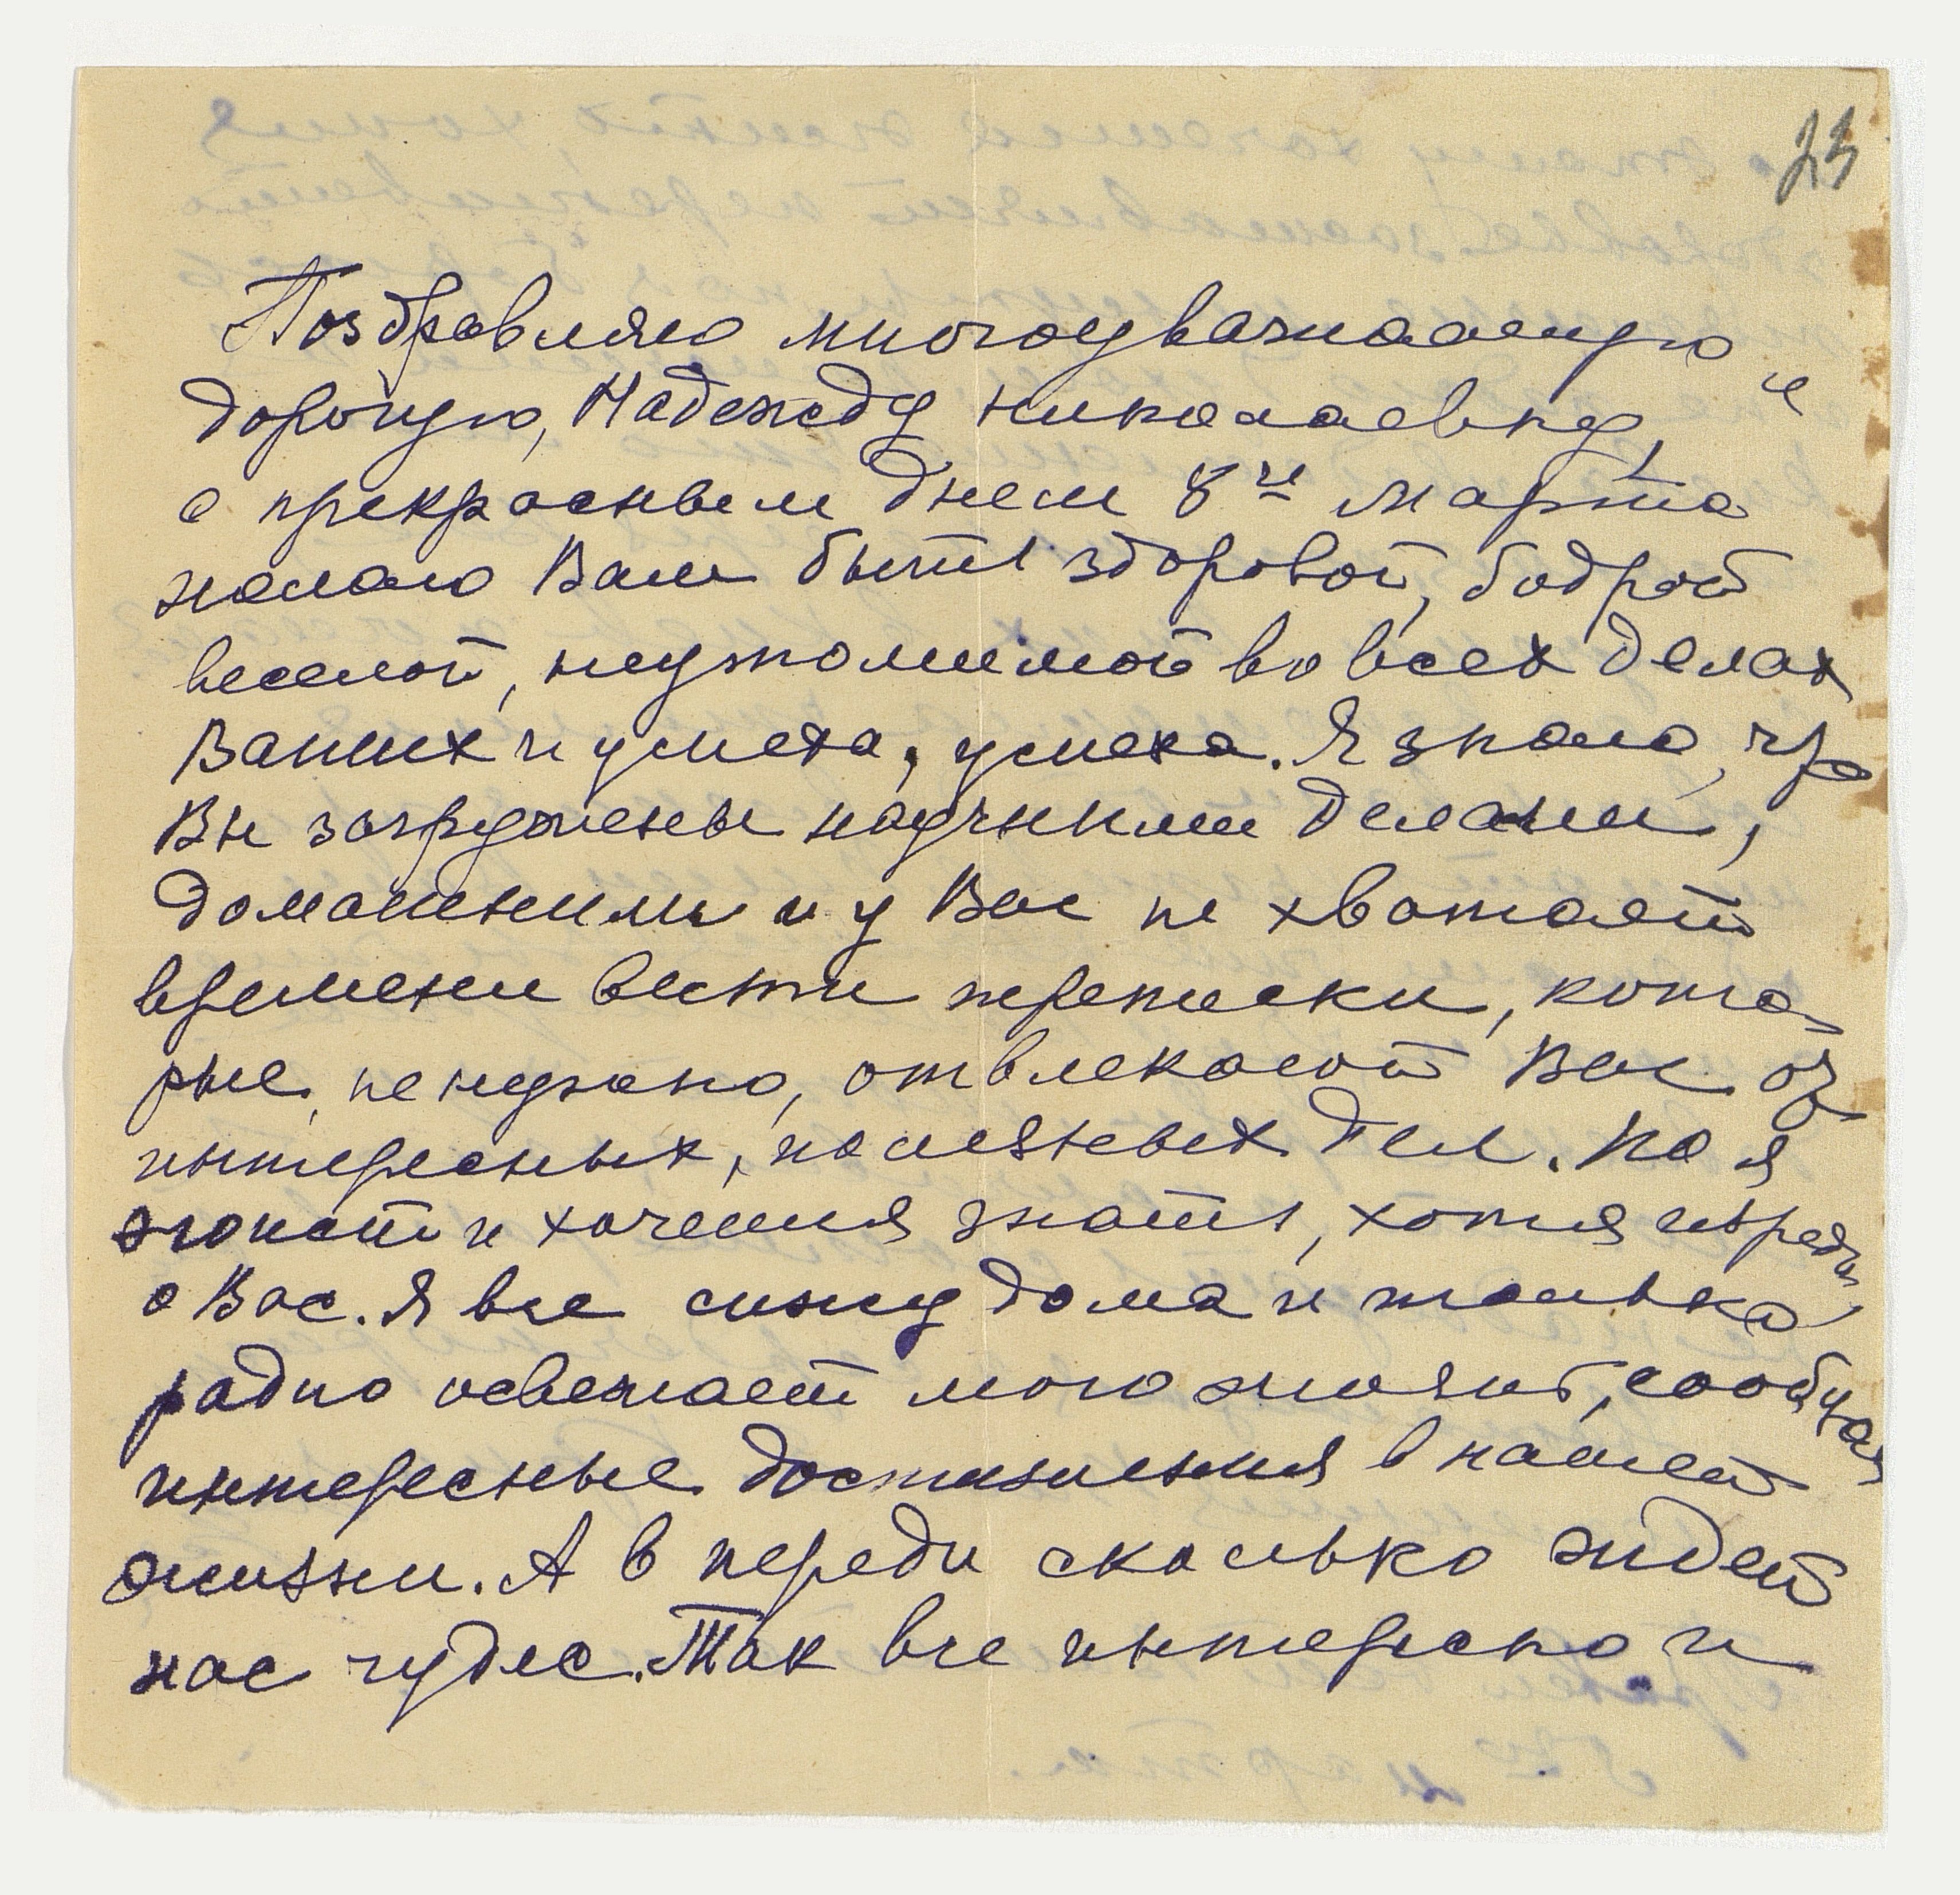 23
Поздравляю многоуважаемую и
дорогую, Надежду Николаевну,
с прекрасным днем 8го марта
желаю Вам быть здоровой, бодрой
веселой, неутомимой во всех делах
Ваших и успеха, успеха. Я знаю, что
Вы загружены научными делами,
домашними и у Вас не хватает
времени вести переписки, кото-
рые, не нужно, отвлекают Вас от
интересных, полезных дел. Но я
эгоист и хочется знать, хотя изредка
о Вас. Я все сижу дома и только
радио освежает мою жизнь, сообщая
интересные достижения в нашей
жизни. А в переди сколько ждет
нас чудес. Так все интересно и